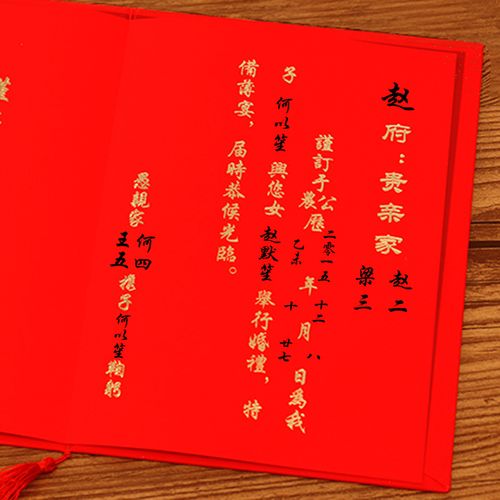 赵府：贵亲家 赵二
梁三
謹訂于公曆二零一五年十二月八日為我
農 乙未 十 廿七
子 何以笙 與您女 赵默笙 舉行婚禮，特
備薄宴，届時恭候光臨。
愚親家 何四
王五 携子何以笙鞠躬